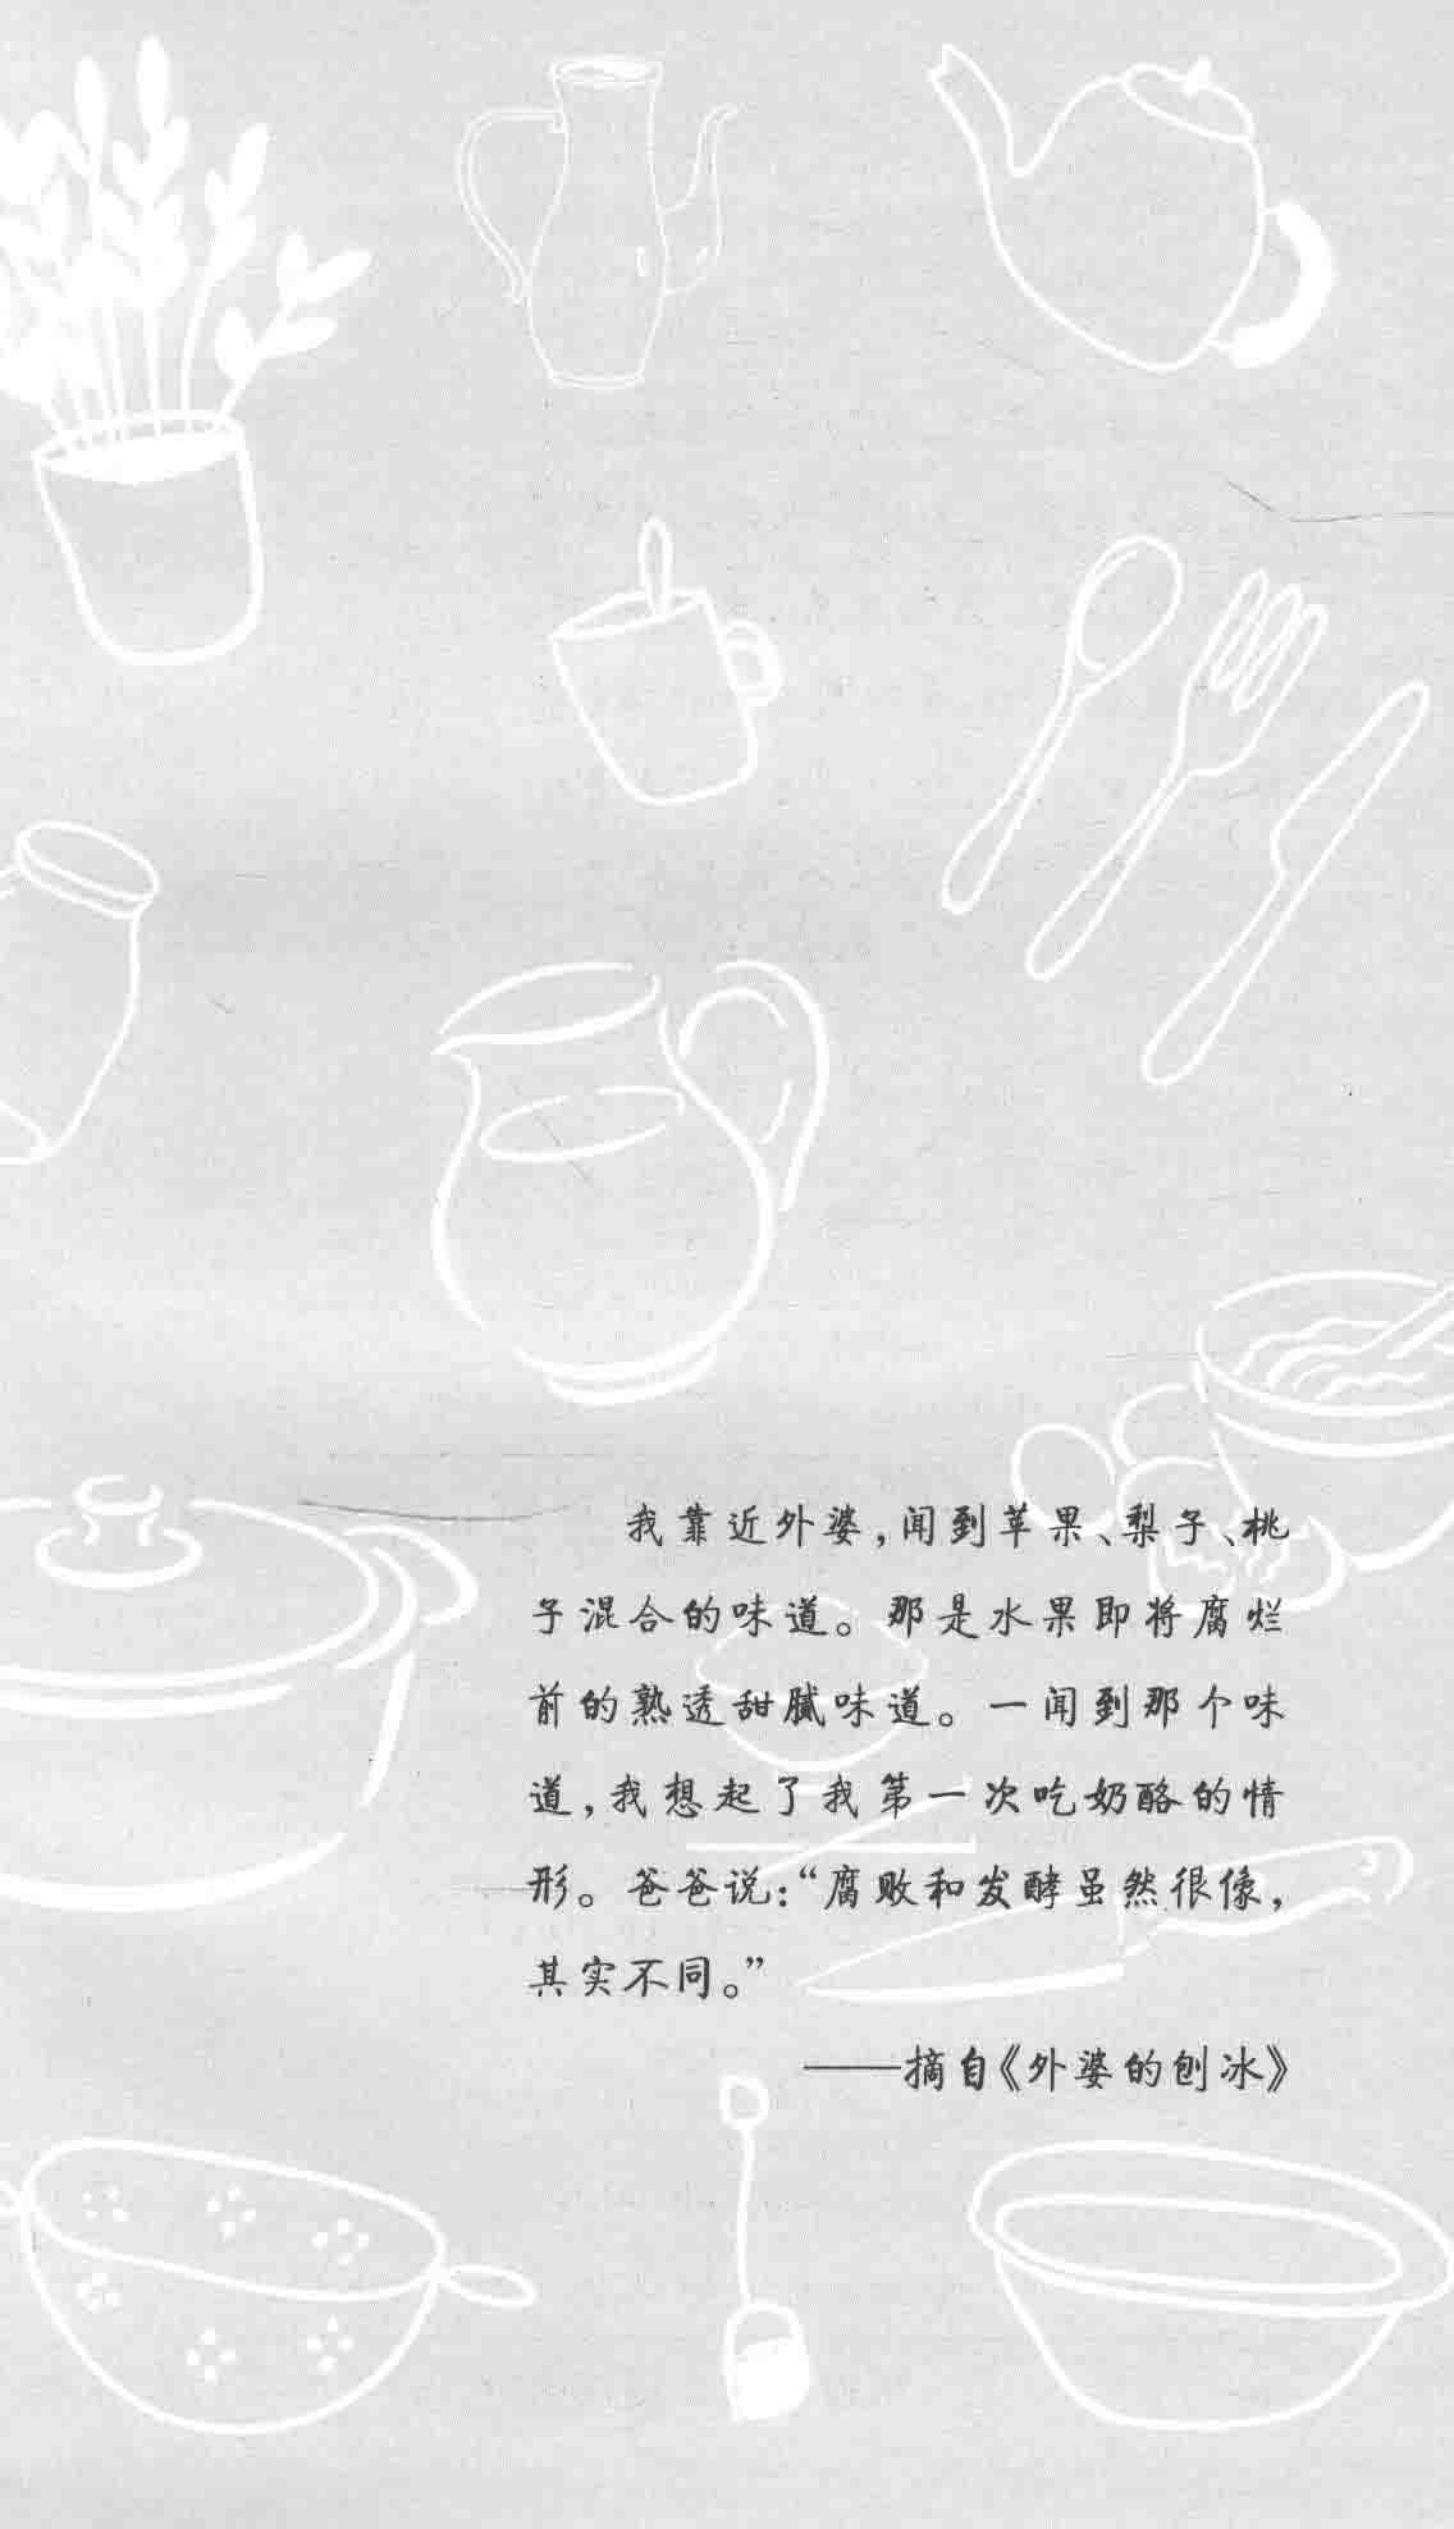 我靠近外婆，闻到苹果、梨子、桃
子混合的味道。那是水果即将腐烂
前的熟透甜腻味道。一闻到那个味
道，我想起了我第一次吃奶酪的情
形。爸爸说：“腐败和发酵虽然很像，
其实不同。”
——摘自《外婆的刨冰》